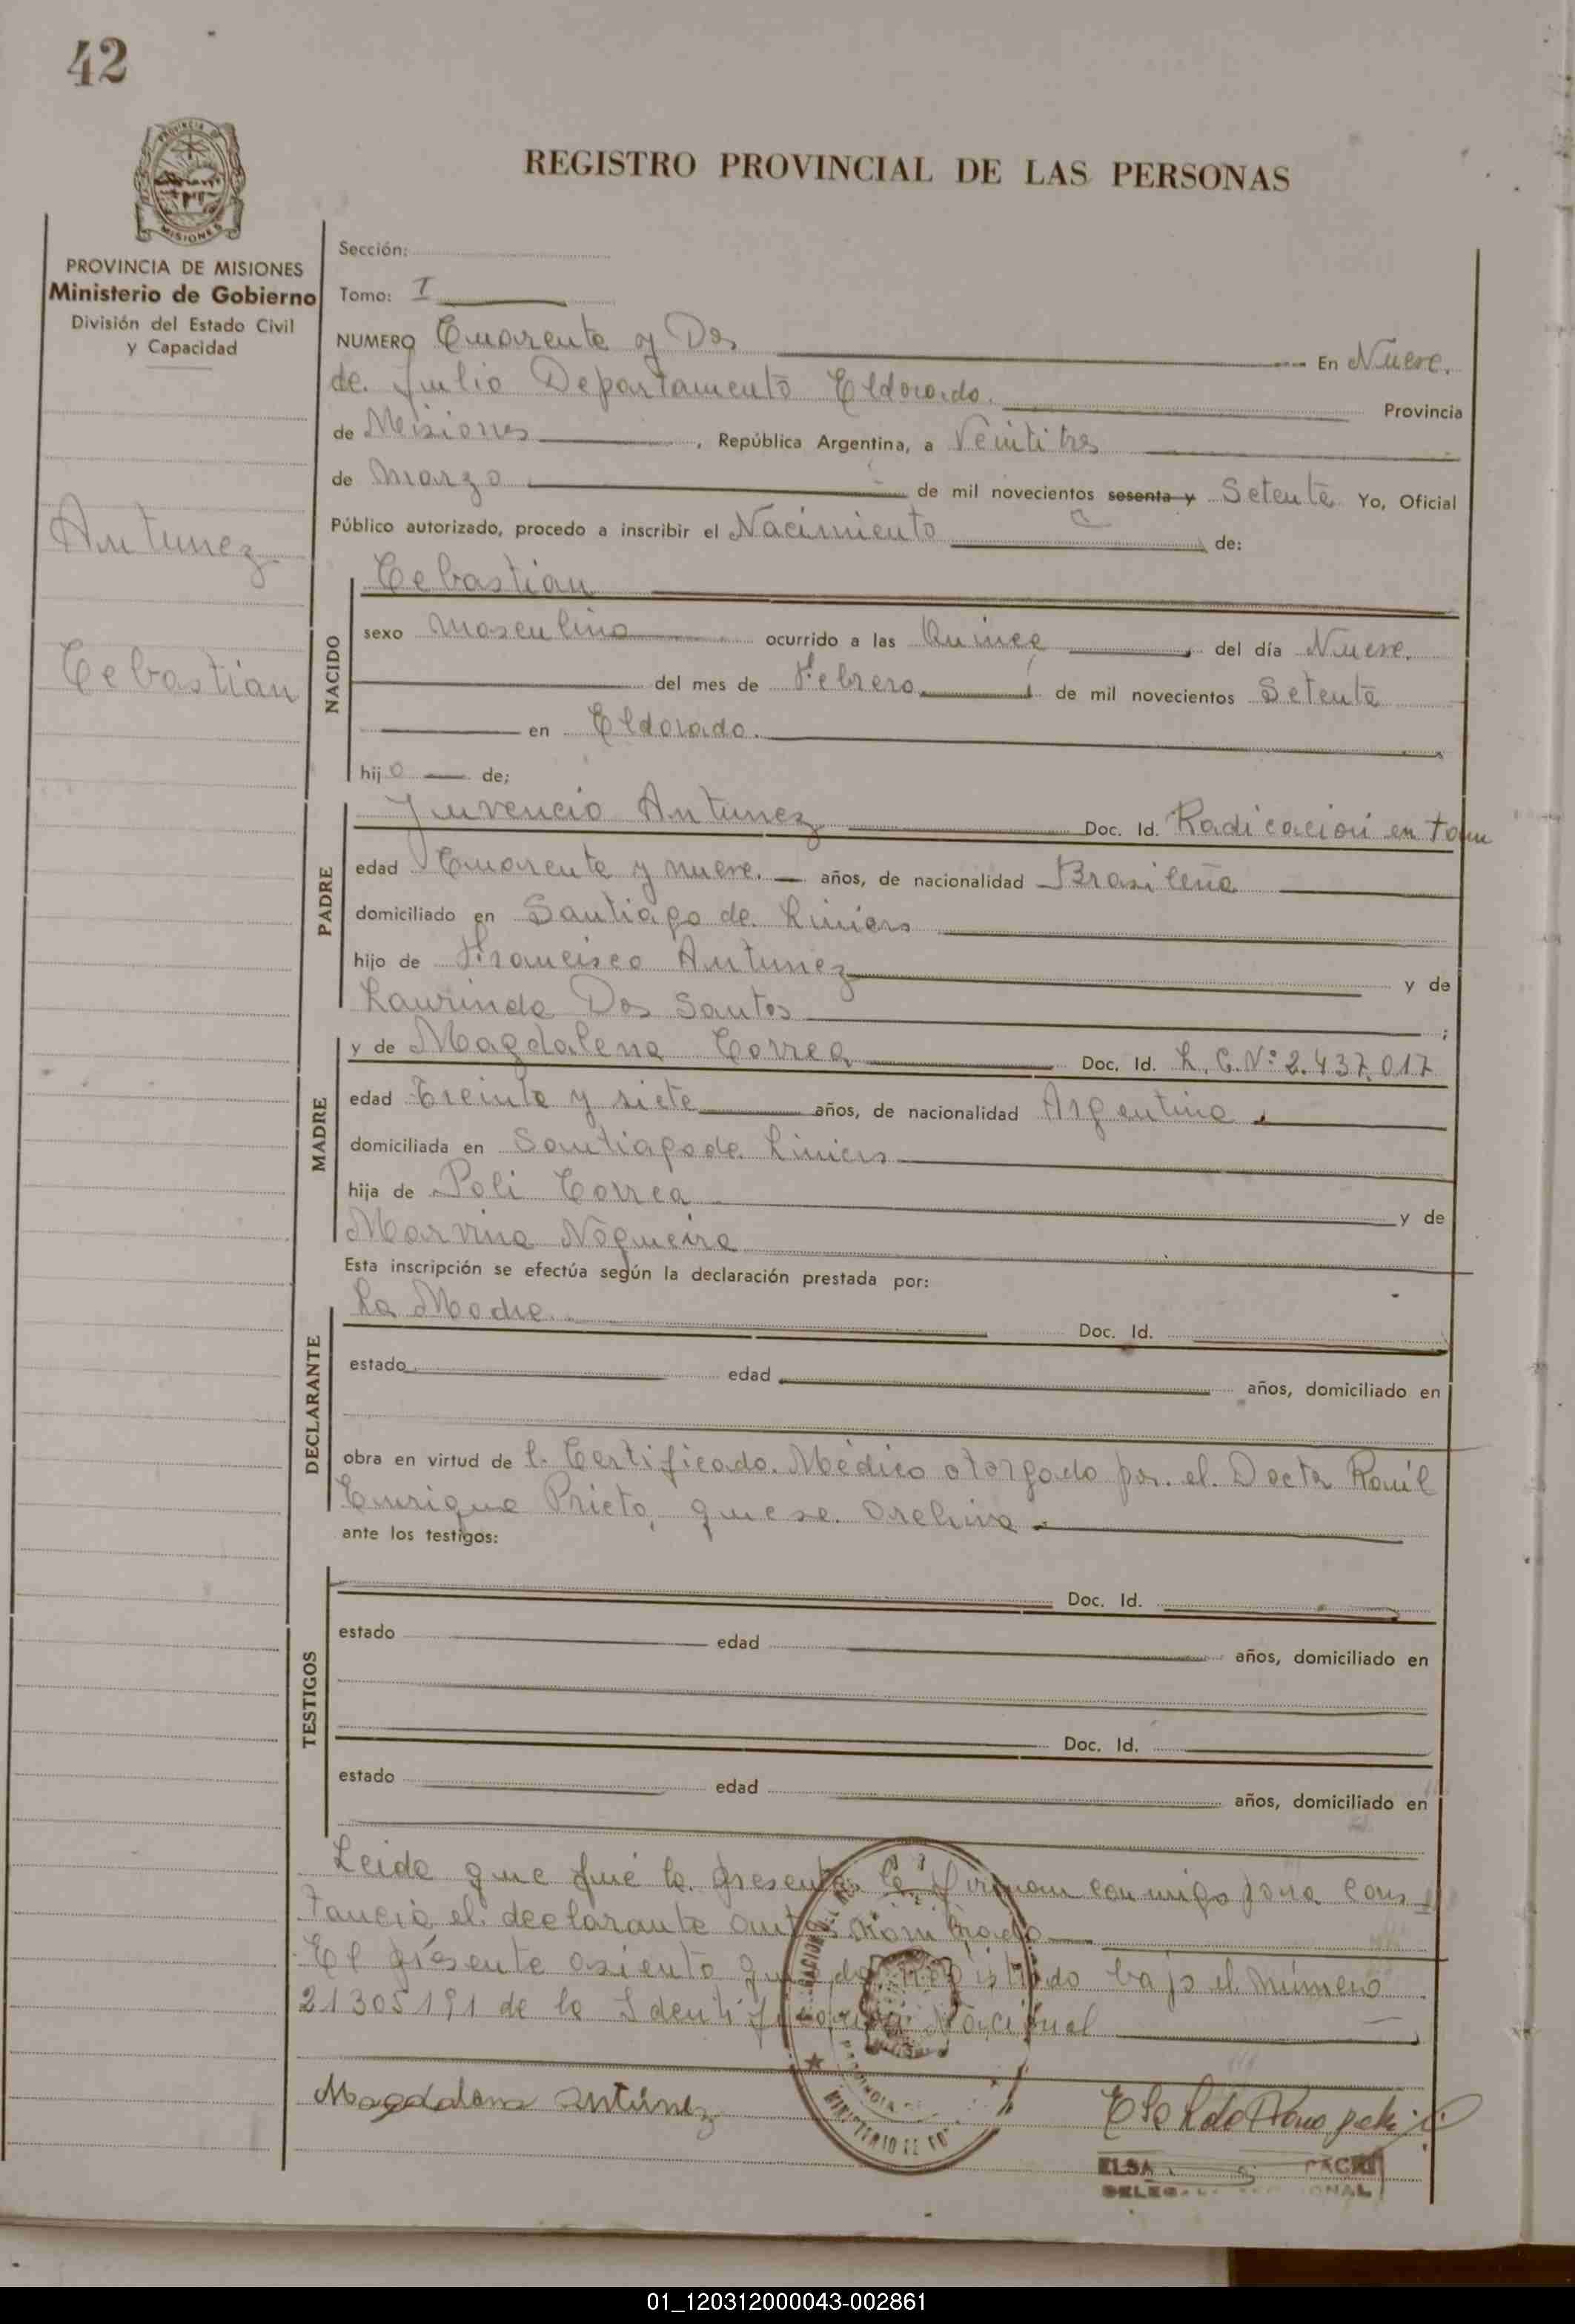 42
REGISTRO PROVINCIAL DE LAS PERSONAS
PROVINCIA DE
MISIONES
PROVINCIA DE MISIONES
Ministerio de Gobierno
División del Estado Civil
y Capacidad
Antunez
Cebastian
Sección:
Tomo: I
NUMERO Cuarenta y Dos En Nueve
de Julio Departamento Eldorado. Provincia
de Misiones, República Argentina, a Veintitres
de Marzo de mil novecientos sesenta y Setenta Yo, Oficial
Público autorizado, procedo a inscribir el Nacimiento de:
NACIDO
Cebastian
sexo Masculino ocurrido a las Quince del día Nueve.
del mes de Febrero de mil novecientos Setenta
en Eldorado.
hijo de;
PADRE
Juvencio Antunez Doc. Id. Radicación en
edad Cuarenta y nueve. años, de nacionalidad Brasileña
domiciliado en Santiago de Liniers
hijo de Francisco Antunez y de
Laurinda Dos Santos ;
MADRE
y de Magdalena Correa Doc. Id. L.C.Nº 2.437.017
edad Treinta y siete años, de nacionalidad Argentina
domiciliada en Santiago de Liniers
hija de Poli Correa y de
Marvina Nogueira
Esta inscripción se efectúa según la declaración prestada por:
DECLARANTE
La Madre Doc. Id.
estado edad años, domiciliado en
obra en virtud de l. Certificado. Médico otorgado por. el. Doctor Raúl
Enrique Prieto, que se. archiva
ante los testigos:
TESTIGOS
Doc. Id.
estado edad años, domiciliado en
Doc. Id.
estado edad años, domiciliado en
Leida que fué la presente la firman conmigo para cons
tancia el declarante
El presente asiento queda registrado bajo el número
21305191 de la Identificatoria Nacional
Magdalena Antúnez
ELSA
01_120312000043-002861